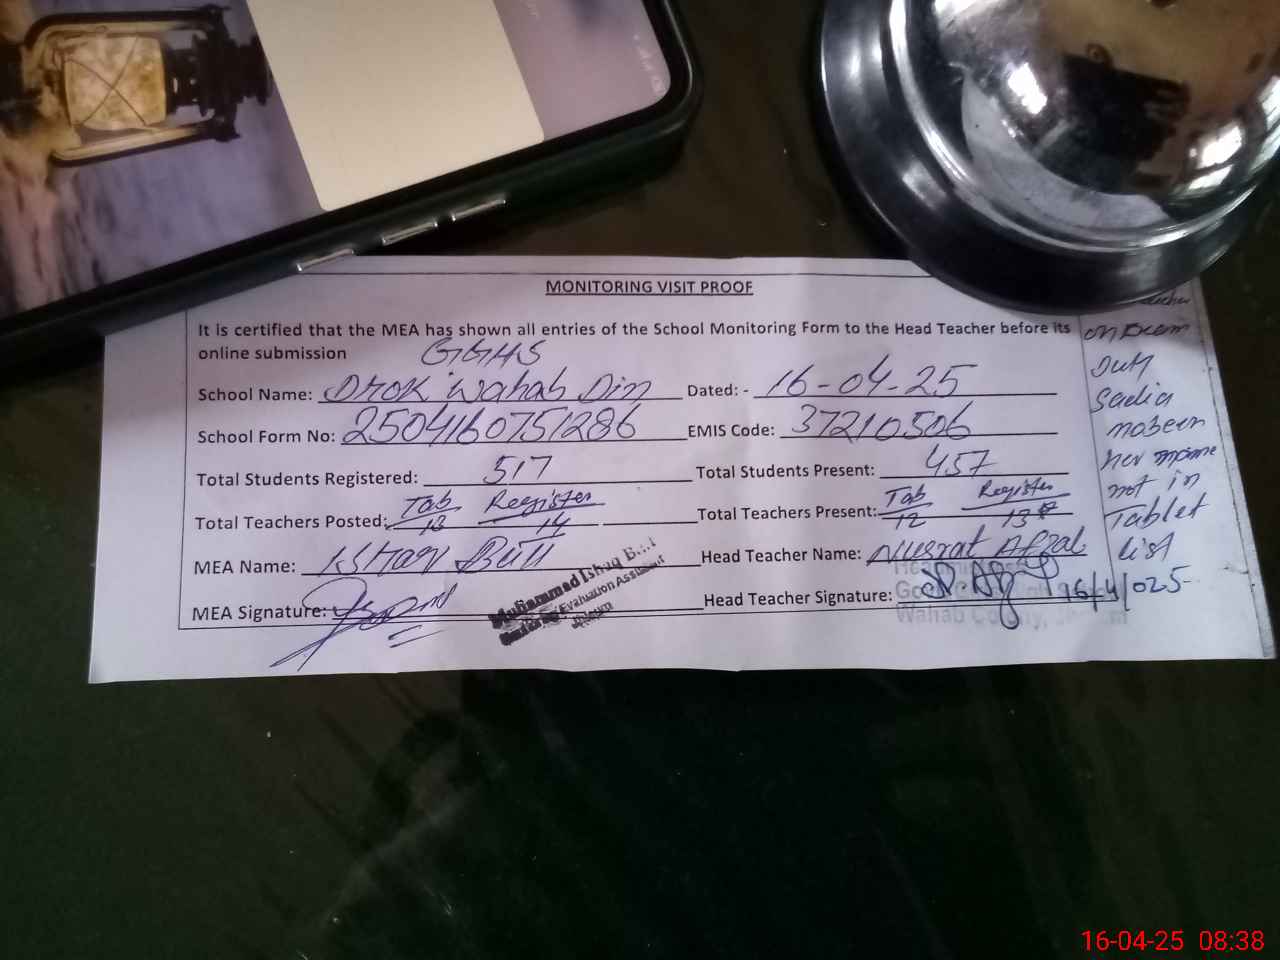 MONITORING VISIT PROOF
It is certified that the MEA has shown all entries of the School Monitoring Form to the Head Teacher before its
online submission
GGHS
School Name: Dhok Wahab Din Dated: - 16-04-25
School Form No: 2504160751286 EMIS Code: 37210506
Total Students Registered: 517 Total Students Present: 457
Tab Register Tab Register
Total Teachers Posted: 13 14 Total Teachers Present: 12 13
MEA Name: Ishaq Butt Head Teacher Name: Nusrat Afzal
MEA Signature: Head Teacher Signature: 16/4/025
Muhammad Ishaq
Evaluation Assistant
Jhelum
Wahab
on Exam
Duty
Sadia
mobeen
her name
not in
Tablet
list
16-04-25 08:38